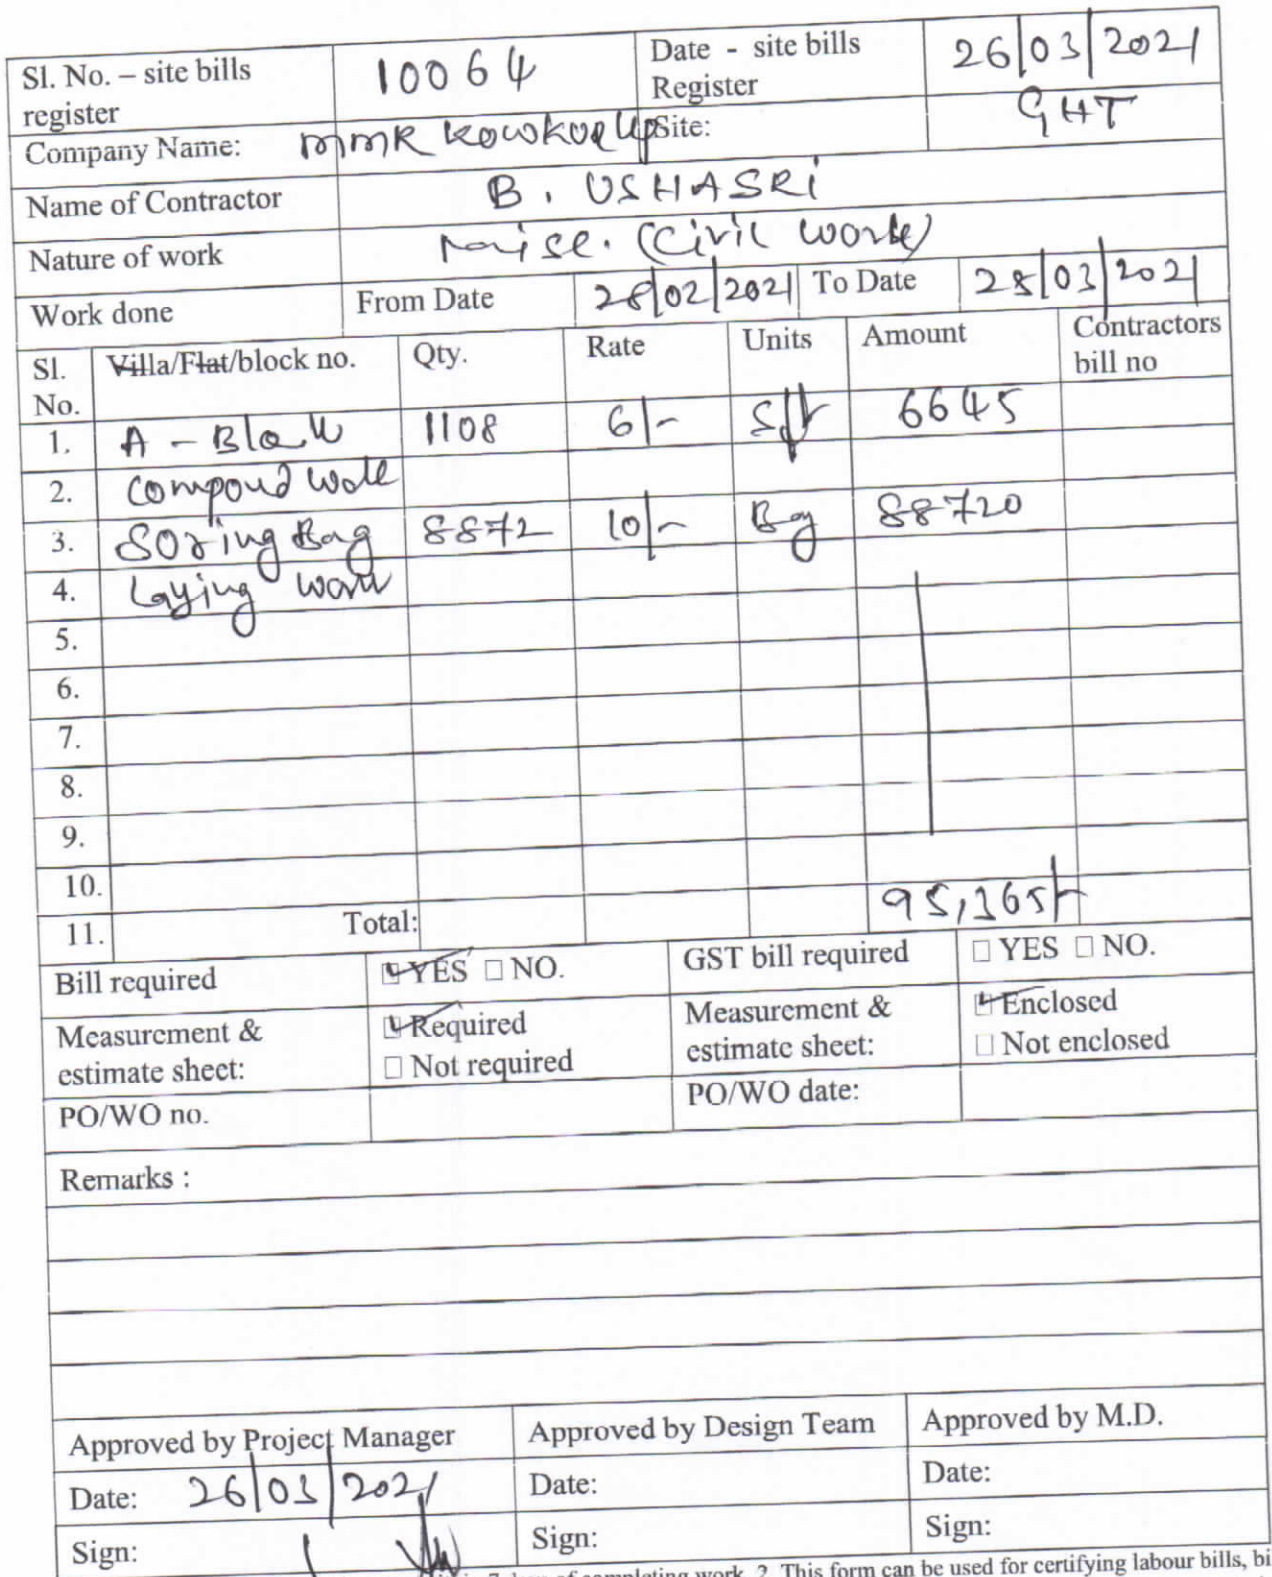 Sl. No. – site bills register 10064 Date - site bills Register 26/03/2021
Company Name: MMR Kowkur LLP Site: GHT
Name of Contractor B. USHASRI
Nature of work Misc. (Civil work)
Work done From Date 28/02/2021 To Date 25/03/2021
Sl. No. Villa/Flat/block no. Qty. Rate Units Amount Contractors bill no
1. A - Block 1108 6/- Sft 6645
2. Compoud wall
3. Soring Bag 8872 10/- Bag 88720
4. Laying work
5.
6.
7.
8.
9.
10.
11. Total: 95,365/-
Bill required YES NO. GST bill required YES NO.
Measurement & estimate sheet: Required Not required Measurement & estimate sheet: Enclosed Not enclosed
PO/WO no. PO/WO date:
Remarks :
Approved by Project Manager Approved by Design Team Approved by M.D.
Date: 26/03/2021 Date: Date:
Sign: Sign: Sign:
of completing work. 2. This form can be used for certifying labour bills,